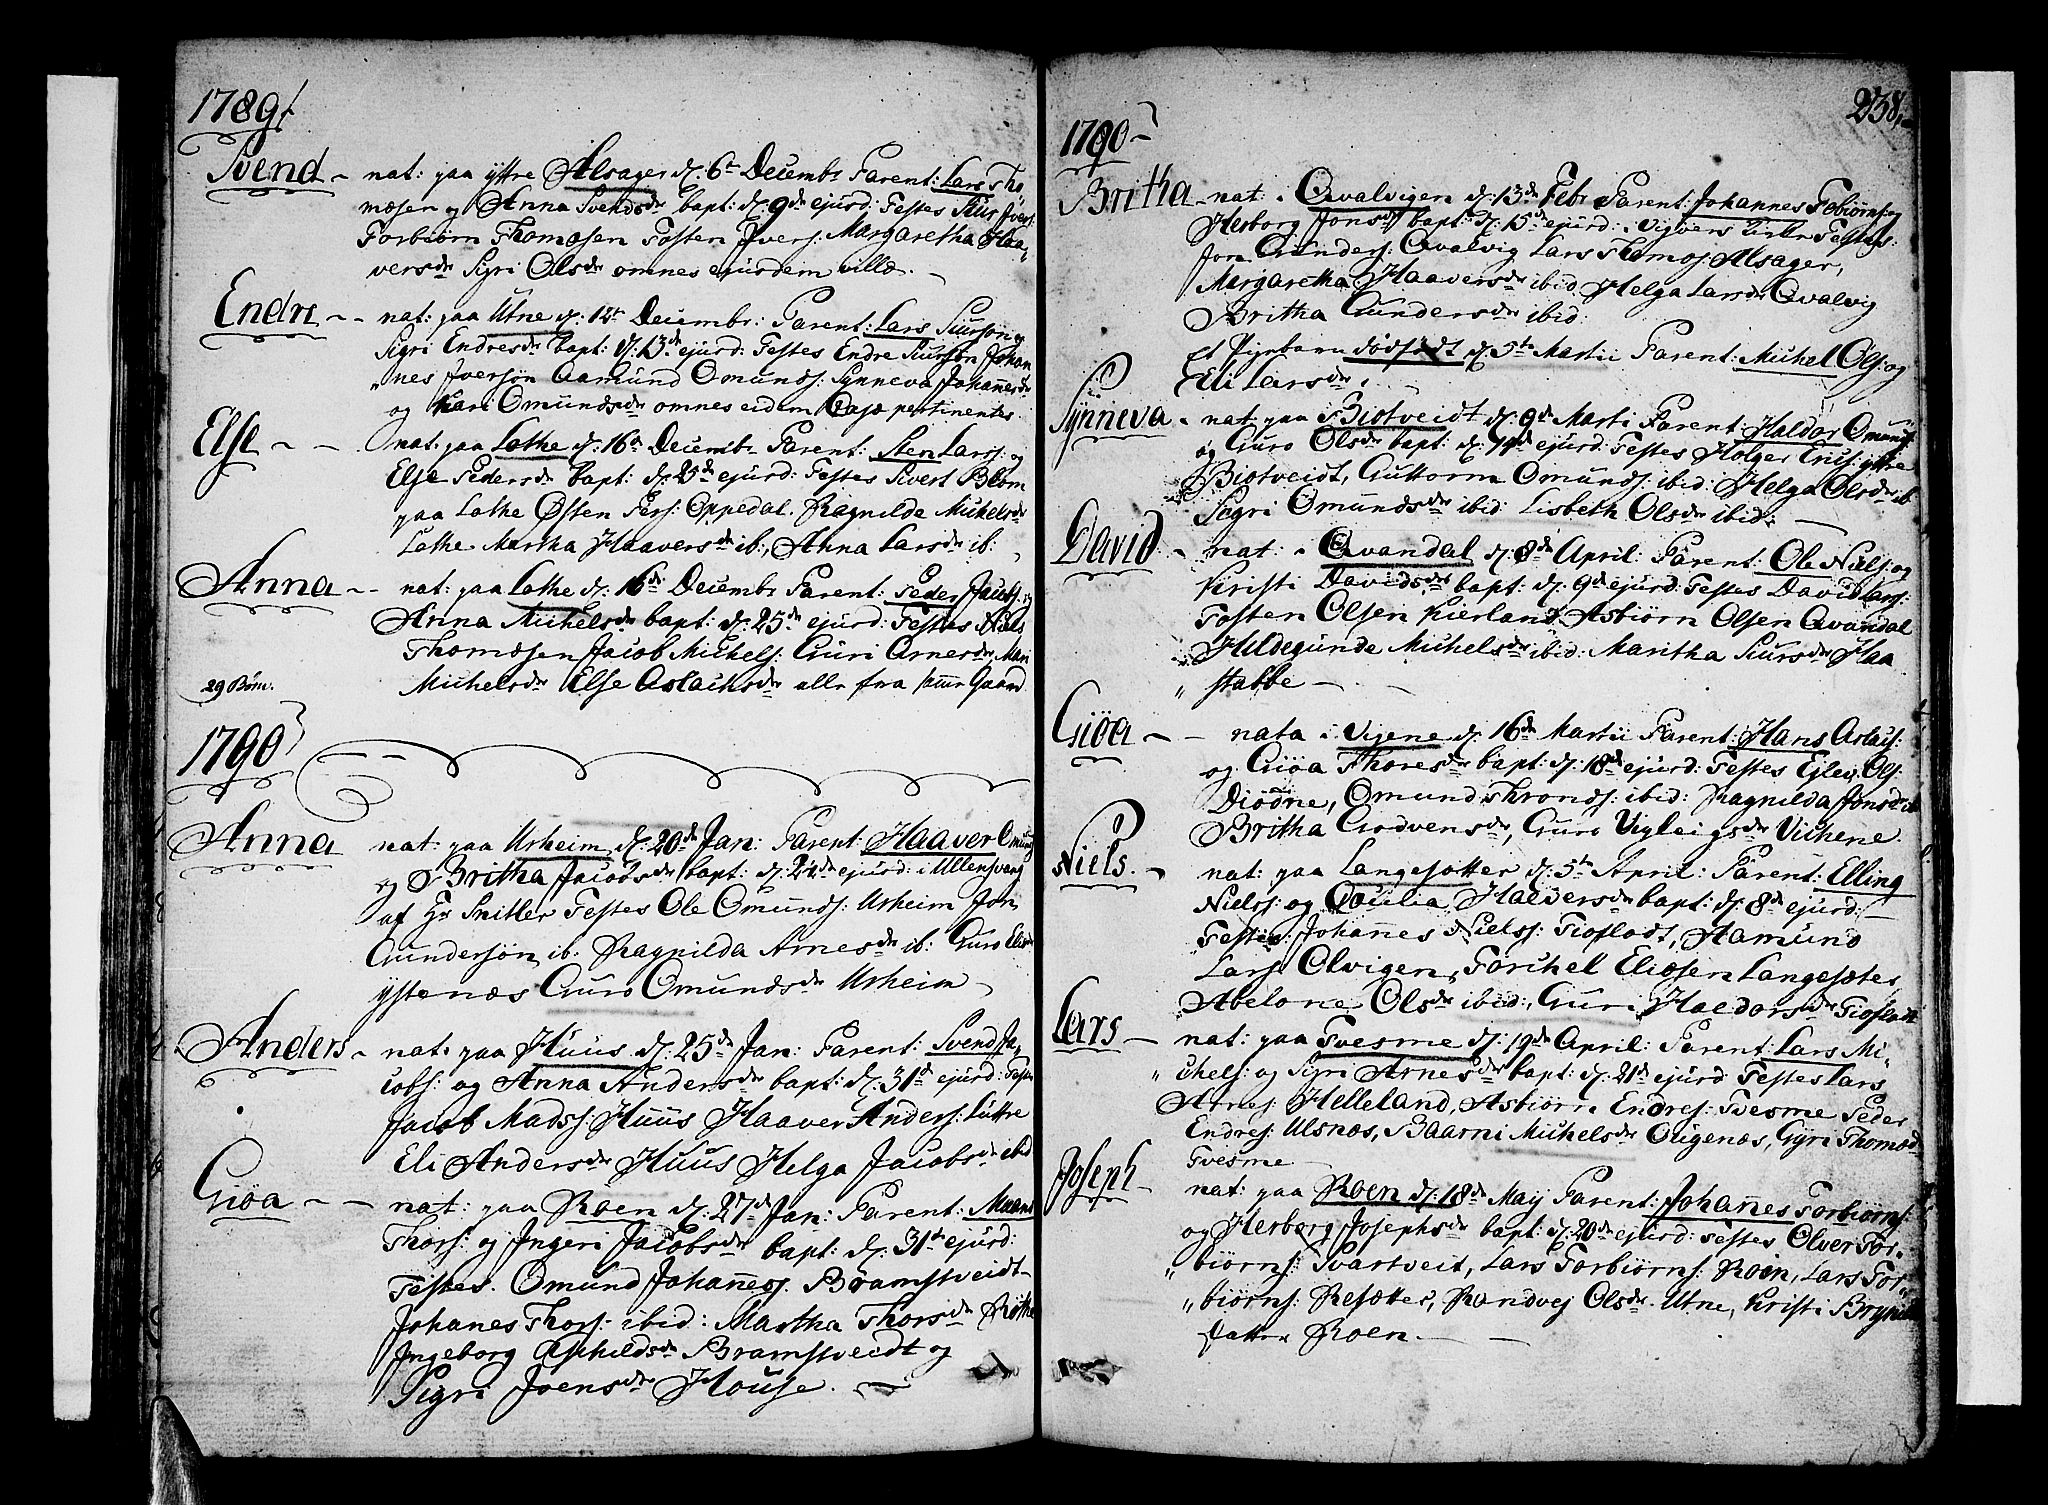 1789
Svend - nat: paa yttre Alsager d: 6te Decembr Parent: Lars Tho
mæsen og Anna Svendsdr bapt: d: 9de ejusd: Testes Siur Ivers:
Torbiørn Thomæsen Tosten Ivers: Margaretha Haa„
versdr Sigri Olsdr omnes ejusdem villæ. -
Endre - - nat: paa Utne d: 12t Decembr: Parent: Lars Siursøn og
Sigri Endresdr bapt: d: 13de ejusd: Testes Endre Siursøn Johan
„nes Iversøn Aamund Omunds: Synneva Johannesdr
og Kari Omundsdr omnes eidem Casæ pertinentes.
Else - - nat: paa Lothe d: 16de Decembr Parent: Sten Larss: og
Else Pedersdr bapt: d: 25de ejusd: Testes Sivert Blom
paa Lothe Østen Pers: Oppedal. Ragnilde Michelsdr
Lothe Martha Haaversdr ib:, Anna Larsdr ib:
Anna - - nat: paa Lothe d: 16de Decembr Parent: Peder Jacobs: og
Anna Michelsdr bapt: d: 25de ejusd: Testes Niels
Thomæsen Jacob Michels: Guri Arnesdr, Mari
29 Børn. Michelsdr Else Aslachsdr alle fra samme Gaard
1790
Anna nat: paa Urheim d: 20de Jan: Parent: Haaver Omund
og Britha Jacobsdr bapt: d: 24de ejusd: i Ullensvang
af Hr Snitler Testes Ole Omunds: Urheim Jon
Gundersøn ib: Ragnilda Arnesdr ib: Guro
ystenæs Guro Omundsdr Urheim -
Anders - nat: paa Huus d: 25de Jan: Parent: Svend Ja„
cobs: og Anna Andersdr bapt: d: 31de ejusd: Testes
Jacob Madss: Huus Haaver Anders: Lutre
Eli Andersdr Huus Helga Jacobsdr ibid
Giøa - - nat: paa Roen d: 27de Jan: Parent: Maans
Thors: og Ingeri Jacobsdr bapt: d: 31te ejusd:
Testes. Omund Johanness: Bramstveidt
Johanes Thors: ibid: Martha Thorsdr
Ingeborg Eskildsdr Bramstveidt og
Sigri Joensdr House. -
238,
1790
Britha - nat: i Qvalvigen d: 13de Febr Parent: Johannes Tobiørns: og
Herborg Jonsdr bapt: d: 15de ejusd: i Vigvers Kirke Testes:
Jon Gunders: Qvalvig Lars Thomæs: Alsager,
Margaretha Haaversdr ibid Helga Larsdr Qvalvig
Britha Gundersdr ibid:
Et Pigebarn dødfødt d: 5te Martii Parent: Michel Ols: og
Eli Larsdr.
Synneva - nat: paa Biotveidt d: 9de Marti Parent: Haldor Omund
og Guro Olsdr bapt: d: 14de ejusd: Testes Holger Erics: yttre
Biotveidt, Guttorm Omunds: ibid: Helga Olsdr ib
Sigri Omundsdr ibid: Lisbeth Olsdr ibid: -
David - nat: i Qvandal d: 8de April: Parent: Ole Niels: og
Kristi Davidsdr bapt: d: 9de ejusd: Testes David Lars:
Tosten Olsen Kierland Asbiørn Olsen Qvandal
Hildegunde Michelsdr ibid: Maritha Siursdr Haa
„stabbe -
Giøa - - nata i Vigene d: 16de Martii Parent: Hans Aslacs:
og Giøa Thoresdr bapt: d: 18de ejusd: Testes Ejlev Ols:
Diødne, Omund Thronds: ibid: Ragnilda Jonsdr ib
Britha Godvensdr, Guro Vigleigsdr Vichene.
Niels. - nat: paa Langesøtter d: 5te April: Parent: Elling
Nielss: og Cecilia Haldersdr bapt: d: 8de ejusd: -
Testes: Johannes Nielss: Tiofladt, Aamund
Lars: Olvigen, Torchel Eliæsen Langesæter
Abelone Olsdr ibid:, Guri Haldorsdr Tiofladt
Lars - nat: paa Tvesme d: 19de April: Parent: Lars Mi„
„chels: og Sigri Arnesdr bapt: d: 21de ejusd Testes Lars
Arnes: Helleland, Asbiørn Endres: Tvesme Peder
Endres: Ulsnæs, Baarni Michelsdr Ovigenæs, Gyri Thomæsd
Tvesme -
Joseph - nat: paa Roen d: 18de May Parent: Johannes Torbiørns:
og Herborg Josephsdr bapt: d: 20de ejusd: Testes Olver Tor„
„biørns: Svartveit, Lars Torbiørns: Roen, Lars Tor„
„biørns: Resætter, Randvej Olsdr Utne, Kristi Brynild
datter Roen. -